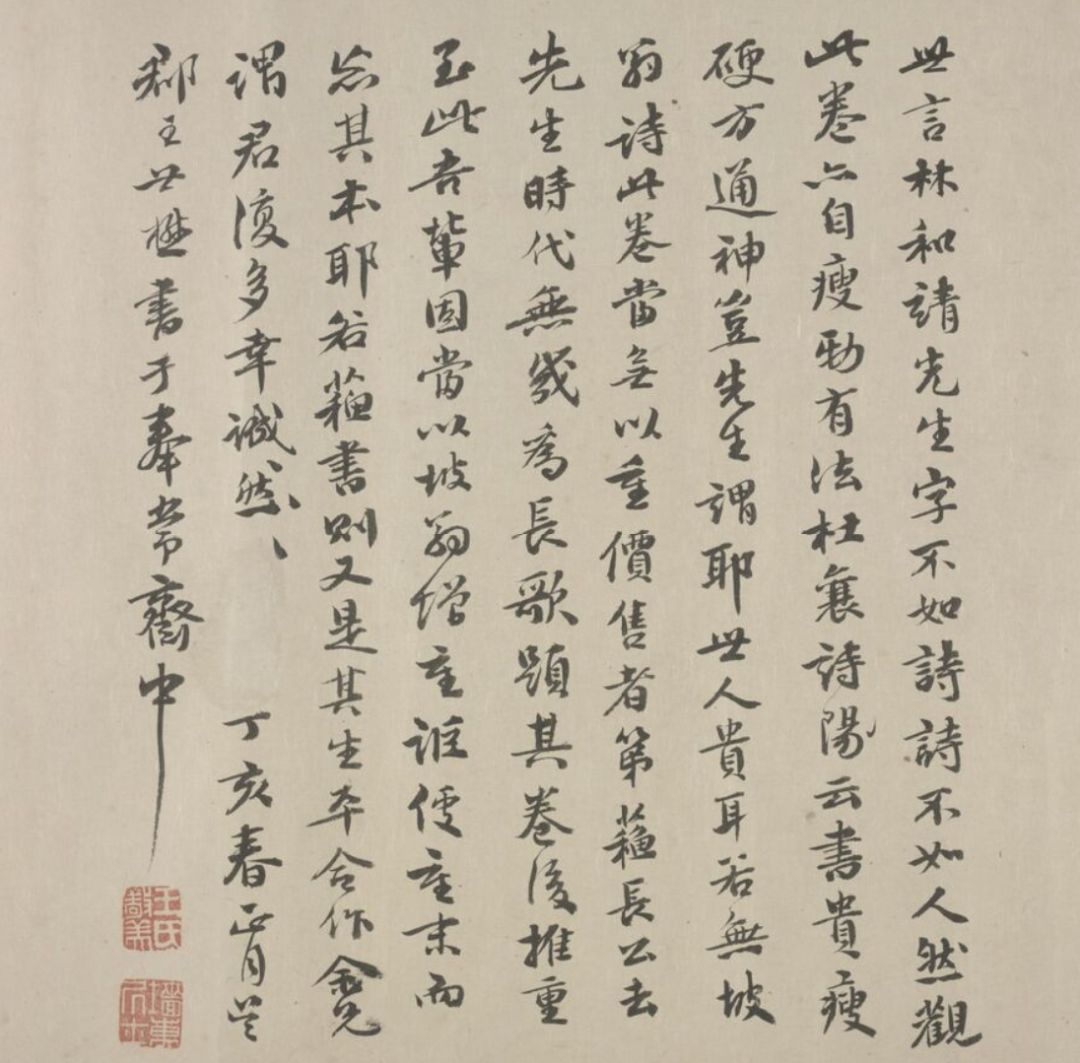 世言林和靖先生字不如詩詩不如人然觀
此卷亦自瘦勁有法杜襄詩陽云書貴瘦
硬方通神豈先生謂耶世人貴耳若無坡
翁詩此卷當無以重價售者第蘓長公去
先生時代無幾為長歌題其卷後推重
至此吾輩固當以坡翁增重詎便重末而
忘其本耶若蘓書則又是其生平合作兄
謂君復多幸誠然〻 丁亥春正月吳
郡王世懋書于奉常齋中
王氏敬美
墻東居士